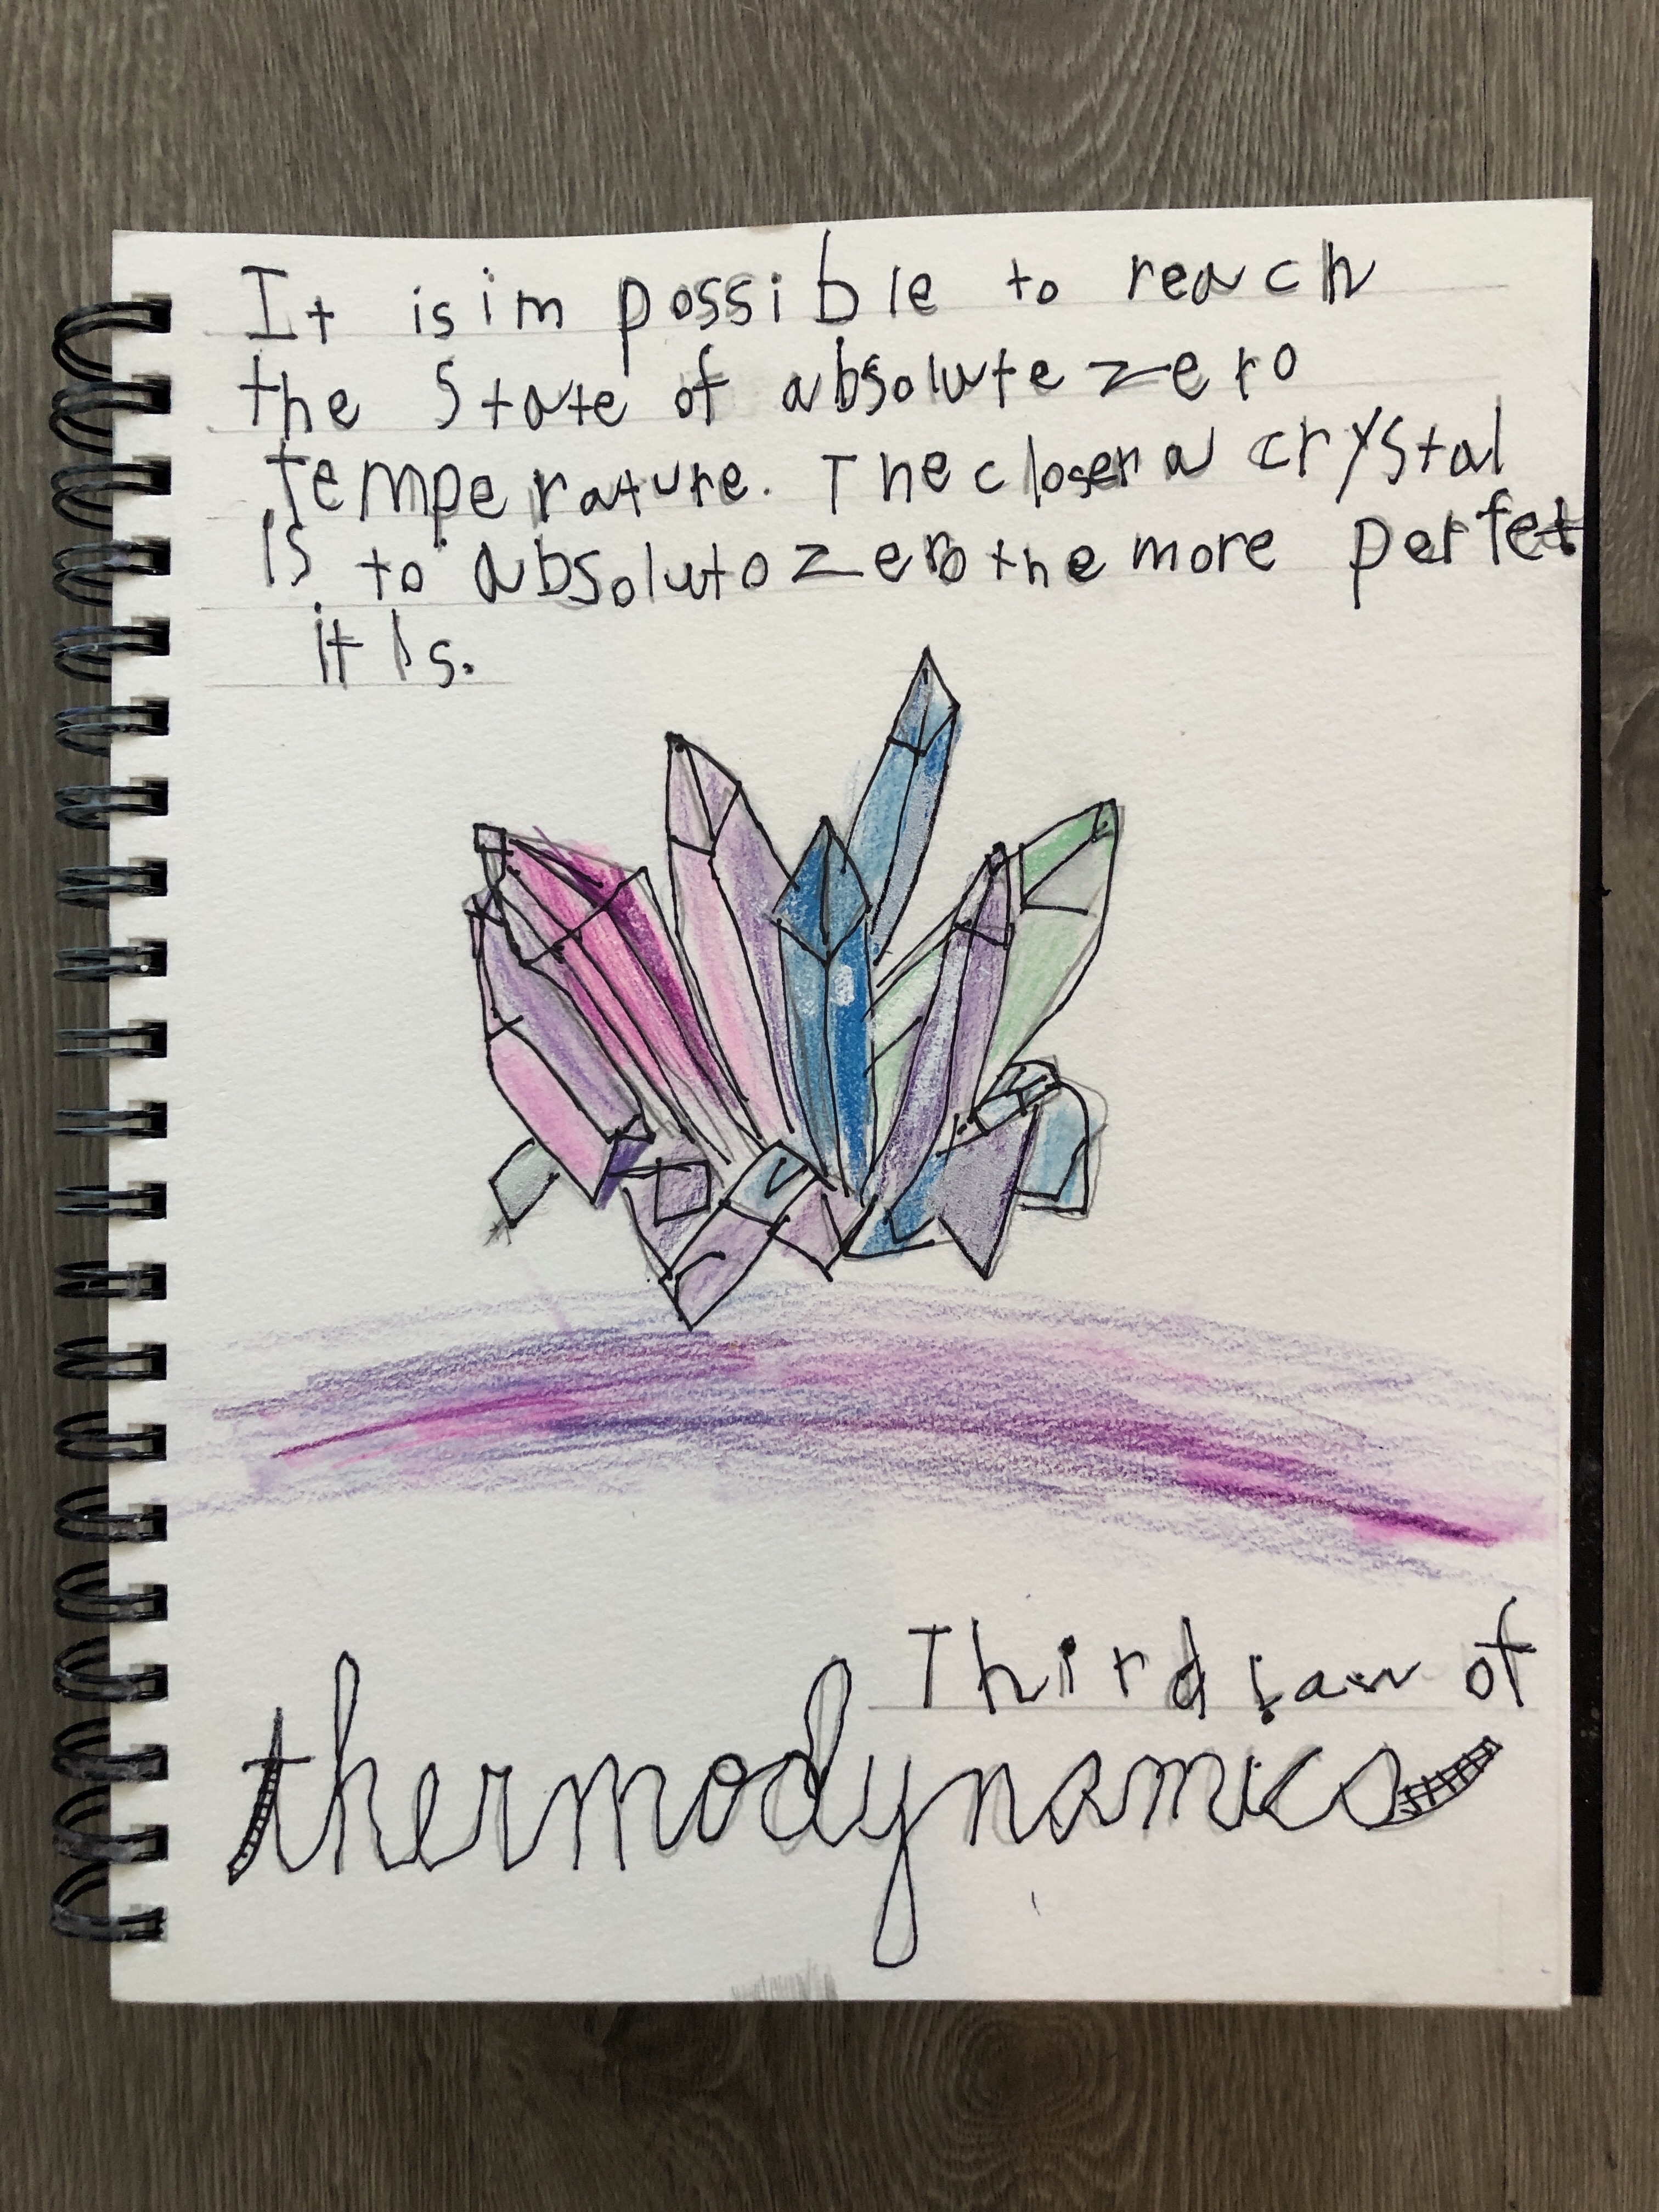 It is impossible to reach
the State of absolute zero
temperature. The closer a crystal
is to absoluto zero the more perfet
it is.
Third law of
thermodynamics